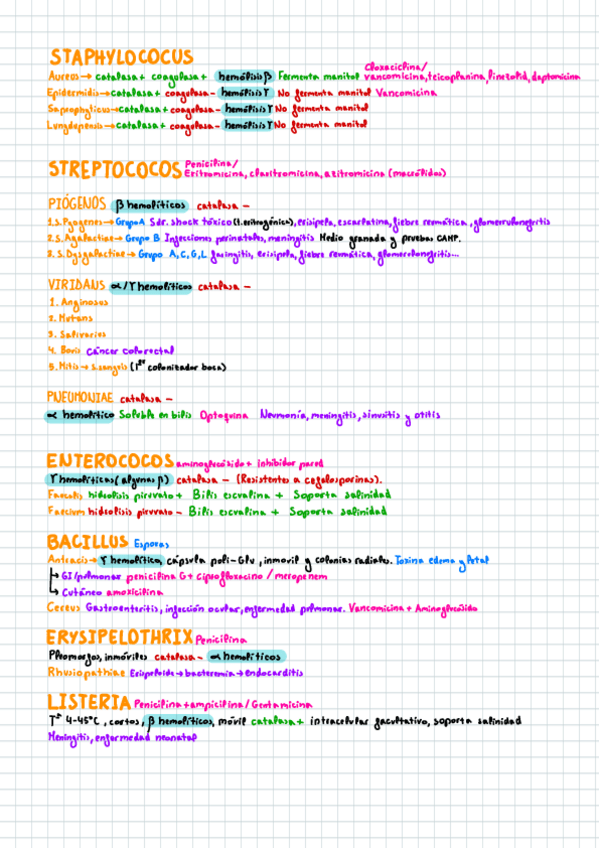 STAPHYLOCOCUS
Cloxacilina/
Aureus→ catalasa+ coagulasa+ hemólisis β Fermenta manitol vancomicina, teicoplanina, linezolid, daptomicina
Epidermidis→catalasa+ coagulasa- hemólisis γ No fermenta manitol Vancomicina
Saprophyticus→catalasa+ coagulasa- hemólisis γ No fermenta manitol
Lungdepensis→catalasa+ coagulasa- hemólisis γ No fermenta manitol
STREPTOCOCOS Penicilina/
Eritromicina, claritromicina, azitromicina (macrólidos)
PIÓGENOS β hemolíticos catalasa -
1. S. Pyogenes→ Grupo A Sdr. shock tóxico (t. eritrogénica), erisipela, escarlatina, fiebre reumática, glomerulonefritis
2. S. Agalactiae→ Grupo B Infecciones perinatales, meningitis Medio granada y pruebas CAMP.
3. S. Dysgalactiae→ Grupo A, C, G, L faringitis, erisipela, fiebre reumática, glomerulonefritis...
VIRIDANS α/γ hemolíticos catalasa -
1. Anginosus
2. Mutans
3. Salivarius
4. Bovis Cáncer colorectal
5. Mitis→ S. sangvis (1er colonizador boca)
PNEUMONIAE catalasa -
α hemolítico Soluble en bilis Optoquina Neumonía, meningitis, sinusitis y otitis
ENTEROCOCOS aminoglucósido + inhibidor pared
γ hemolíticas (algunas β) catalasa - (Resistentes a cefalosporinas).
Faecalis hidrolisis piruvato + Bilis esculina + Soporta salinidad
Faecium hidrolisis piruvato - Bilis esculina + Soporta salinidad
BACILLUS Esporas
Antracis→ γ hemolítico, cápsula poli-Glu, inmovil y colonias radiales. Toxina edema y letal
↳ GI/pulmonar penicilina G + ciprofloxacino / meropenem
↳ Cutáneo amoxicilina
Cereus Gastroenteritis, infección ocular, enfermedad pulmonar. Vancomicina + Aminoglucósido
ERYSIPELOTHRIX Penicilina
Pleomorfos, inmóviles catalasa - α hemolíticos
Rhusiopathiae Erisipeloide→bacteremia→endocarditis
LISTERIA Penicilina + ampicilina / Gentamicina
Tª 4-45ºC, cortos, β hemolíticos, móvil catalasa + intracelular facultativo, soporta salinidad
Meningitis, enfermedad neonatal